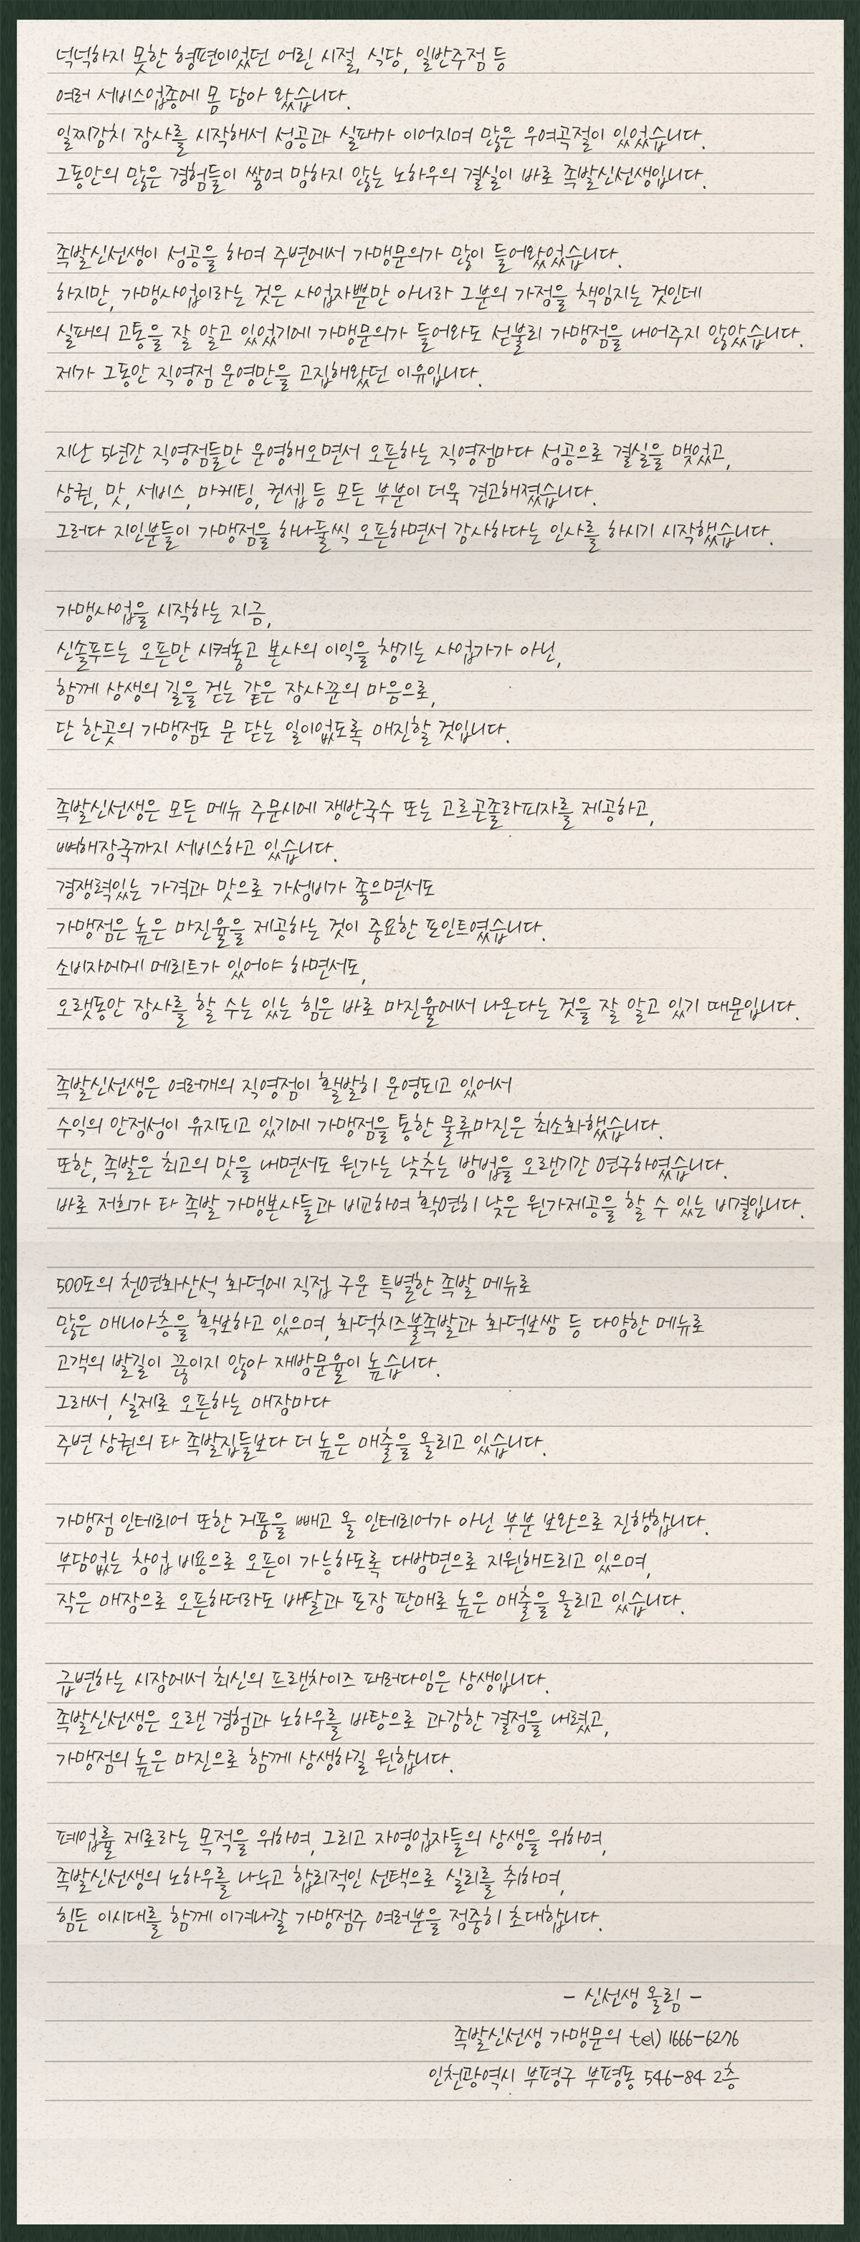 넉넉하지 못한 형편이었던 어린 시절, 식당, 일반주점 등
여러 서비스업종에 몸 담아 왔습니다.
일찌감치 장사를 시작해서 성공과 실패가 이어지며 많은 우여곡절이 있었습니다.
그동안의 많은 경험들이 쌓여 망하지 않는 노하우의 결실이 바로 족발신선생입니다.
족발신선생이 성공을 하며 주변에서 가맹문의가 많이 들어왔었습니다.
하지만, 가맹사업이라는 것은 사업자뿐만 아니라 그분의 가정을 책임지는 것인데
실패의 고통을 잘 알고 있었기에 가맹문의가 들어와도 섣불리 가맹점을 내어주지 않았습니다.
제가 그동안 직영점 운영만을 고집해왔던 이유입니다.
지난 5년간 직영점들만 운영해오면서 오픈하는 직영점마다 성공으로 결실을 맺었고,
상권, 맛, 서비스, 마케팅, 컨셉 등 모든 부분이 더욱 견고해졌습니다.
그러다 지인분들이 가맹점을 하나둘씩 오픈하면서 감사하다는 인사를 하시기 시작했습니다.
가맹사업을 시작하는 지금,
신솔푸드는 오픈만 시켜놓고 본사의 이익을 챙기는 사업가가 아닌,
함께 상생의 길을 걷는 같은 장사꾼의 마음으로,
단 한곳의 가맹점도 문 닫는 일이없도록 매진할 것입니다.
족발신선생은 모든 메뉴 주문시에 쟁반국수 또는 고르곤졸라피자를 제공하고,
뼈해장국까지 서비스하고 있습니다.
경쟁력있는 가격과 맛으로 가성비가 좋으면서도
가맹점은 높은 마진율을 제공하는 것이 중요한 포인트였습니다.
소비자에게 메리트가 있어야 하면서도,
오랫동안 장사를 할 수는 있는 힘은 바로 마진율에서 나온다는 것을 잘 알고 있기 때문입니다.
족발신선생은 여러개의 직영점이 활발히 운영되고 있어서
수익의 안정성이 유지되고 있기에 가맹점을 통한 물류마진은 최소화했습니다.
또한, 족발은 최고의 맛을 내면서도 원가는 낮추는 방법을 오랜기간 연구하였습니다.
바로 저희가 타 족발 가맹본사들과 비교하여 확연히 낮은 원가제공을 할 수 있는 비결입니다.
500도의 천연화산석 화덕에 직접 구운 특별한 족발 메뉴로
많은 매니아층을 확보하고 있으며, 화덕치즈불족발과 화덕보쌈 등 다양한 메뉴로
고객의 발길이 끊이지 않아 재방문율이 높습니다.
그래서, 실제로 오픈하는 매장마다
주변 상권의 타 족발집들보다 더 높은 매출을 올리고 있습니다.
가맹점 인테리어 또한 거품을 빼고 올 인테리어가 아닌 부분 보완으로 진행합니다.
부담없는 창업 비용으로 오픈이 가능하도록 다방면으로 지원해드리고 있으며,
작은 매장으로 오픈하더라도 배달과 포장 판매로 높은 매출을 올리고 있습니다.
급변하는 시장에서 최신의 프랜차이즈 패러다임은 상생입니다.
족발신선생은 오랜 경험과 노하우를 바탕으로 과감한 결정을 내렸고,
가맹점의 높은 마진으로 함께 상생하길 원합니다.
폐업률 제로라는 목적을 위하여, 그리고 자영업자들의 상생을 위하여,
족발신선생의 노하우를 나누고 합리적인 선택으로 실리를 취하며,
힘든 이시대를 함께 이겨나갈 가맹점주 여러분을 정중히 초대합니다.
- 신선생 올림 -
족발신선생 가맹문의 tel) 1666-6276
인천광역시 부평구 부평동 546-84 2층